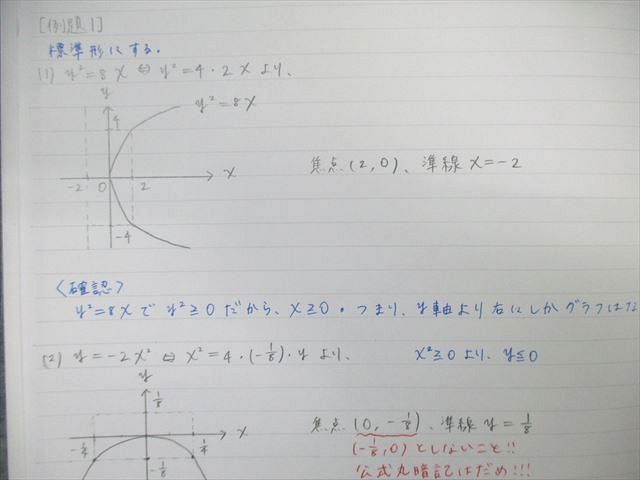 [例題1]
標準形にする。
(1) y²=8x ⇔ y²=4・2x より、
y
4
y²=8x
-2 0 2 x
焦点(2,0)、準線 x=-2
-4
<確認>
y²=8x で y²≧0 だから、x≧0。つまり、y軸より右にしかグラフはな
(2) y=-2x² ⇔ x²=4・(-1/8)・y より、 x²≧0 より、y≦0
y
1/8
x
焦点(0,-1/8)、準線 y=1/8
-1/4 1/4
(-1/8,0)としないこと!!
-1/8
公式丸暗記はだめ!!!